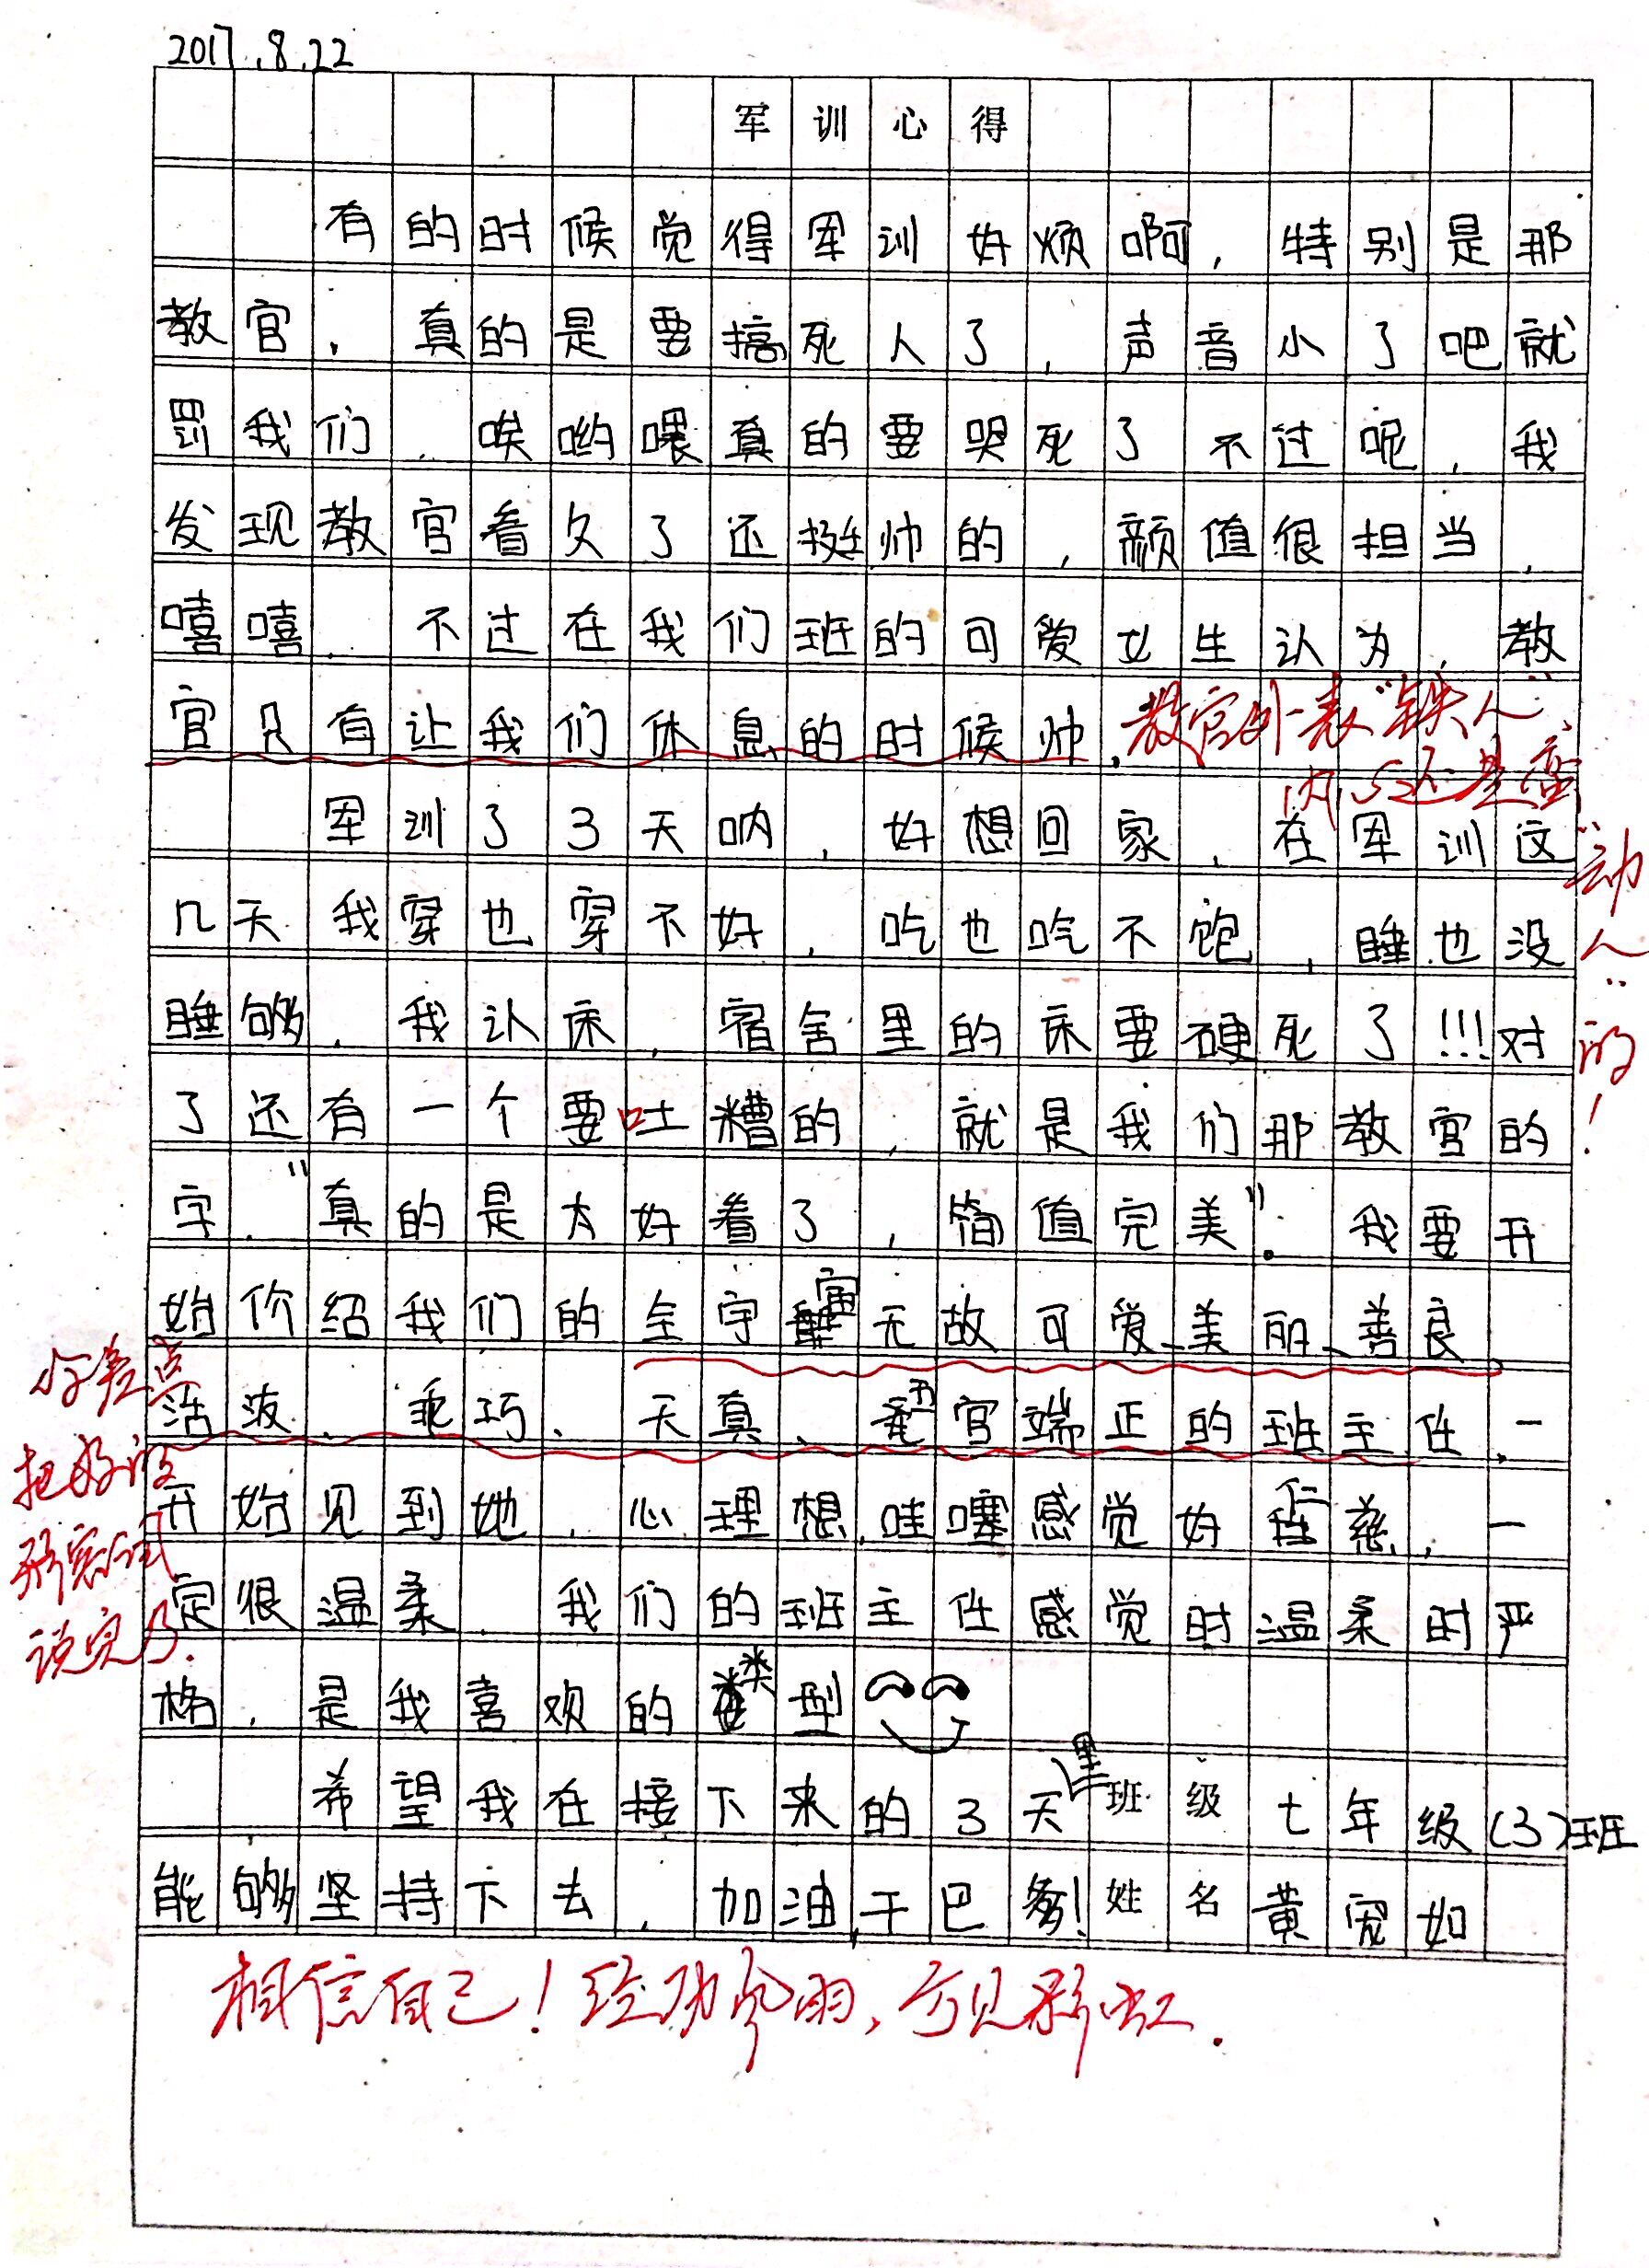 2017.8.22
军训心得
有的时候觉得军训好烦啊，特别是那
教官，真的是要搞死人了，声音小了吧就
罚我们，唉哟喂真的要哭死了 不过呢，我
发现教官看久了还挺帅的，颜值很担当，
嘻嘻，不过在我们班的可爱女生认为，教
官只有让我们休息的时候帅，
教官外表"铁人"，
内心还是蛮
"动人"的！
军训了3天呐，好想回家，在军训这
几天 我穿也穿不好，吃也吃不饱，睡也没
睡够，我认床，宿舍里的床要硬死了!!!对
了还有一个要吐糟的，就是我们那教官的
字，"真的是太好看了，简值完美"。我要开
始价绍我们的全宇宙无敌可爱、美丽、善良、
活泼、乖巧、天真、五官端正的班主任，一
你差点
把好的
形容词
说完了.
开始见到她，心理想，哇噻感觉好仁慈，一
定很温柔，我们的班主任感觉时温柔时严
格，是我喜欢的类型
希望我在接下来的3天里
班级 七年级(3)班
能够坚持下去，加油，干巴爹!
姓名 黄宽如
相信自己！经历风雨，方见彩虹.